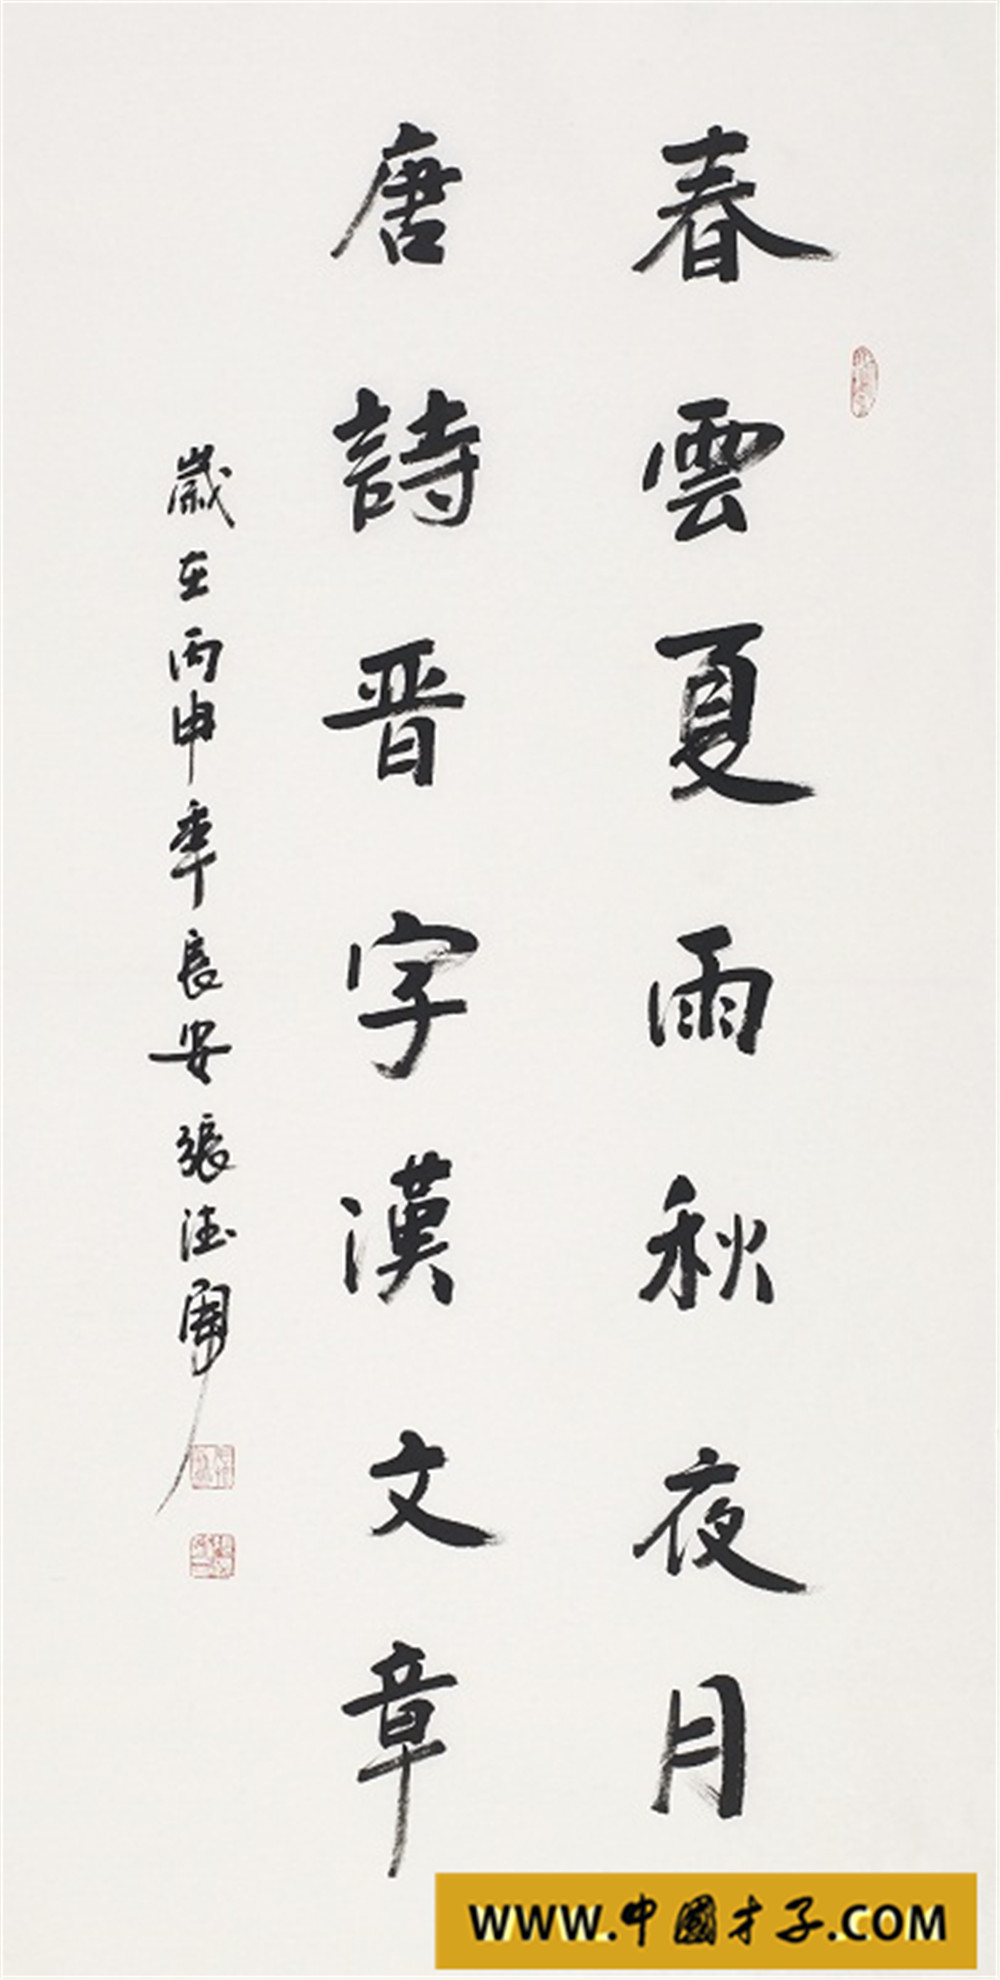 春雲夏雨秋夜月
唐詩晋字漢文章
歲在丙申年長安張法
WWW.中國才子.COM